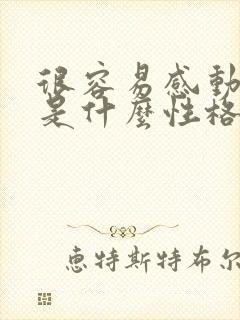 很容易感動
是什麼性格
恵特斯特布尔